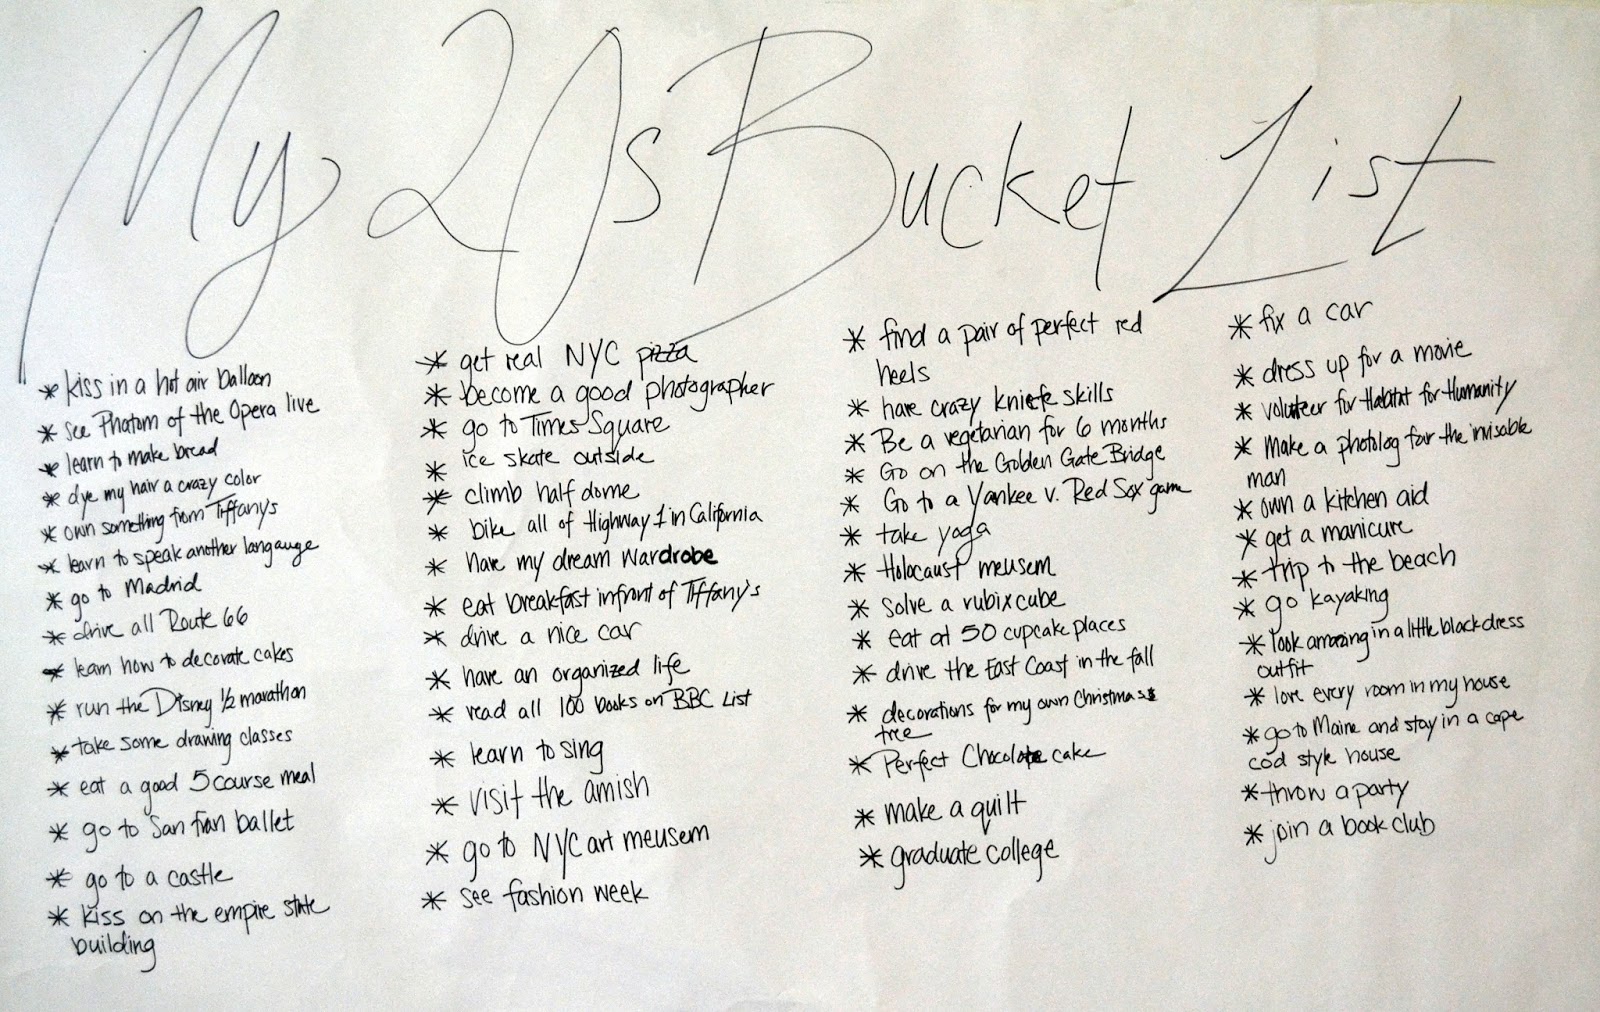 My 20s Bucket List
* kiss in a hot air balloon
* see Phatom of the Opera live
* learn to make bread
* dye my hair a crazy color
* own something from Tiffany's
* learn to speak another langauge
* go to Madrid
* drive all Route 66
* learn how to decorate cakes
* run the Disney 1/2 marathon
* take some drawing classes
* eat a good 5 course meal
* go to San fran ballet
* go to a castle
* kiss on the empire state
building
* get real NYC pizza
* become a good photographer
* go to Times Square
* ice skate outside
* climb half dome
* bike all of Highway 1 in California
* have my dream wardrobe
* eat breakfast infront of Tiffany's
* drive a nice car
* have an organized life
* read all 100 books on BBC List
* learn to sing
* visit the amish
* go to NYC art meusem
* see fashion week
* find a pair of perfect red
heels
* have crazy knife skills
* Be a vegetarian for 6 months
* Go on the Golden Gate Bridge
* Go to a Yankee v. Red Sox game
* take yoga
* Holocaust meusem
* solve a rubix cube
* eat at 50 cupcake places
* drive the East Coast in the fall
* decorations for my own Christmas
tree
* Perfect Chocolate cake
* make a quilt
* graduate college
* fix a car
* dress up for a movie
* volunteer for Habitat for Humanity
* make a photolog for the invisable
man
* own a kitchen aid
* get a manicure
* trip to the beach
* go kayaking
* look amazing in a little black dress
outfit
* love every room in my house
* go to Maine and stay in a cape
cod style house
* throw a party
* join a book club